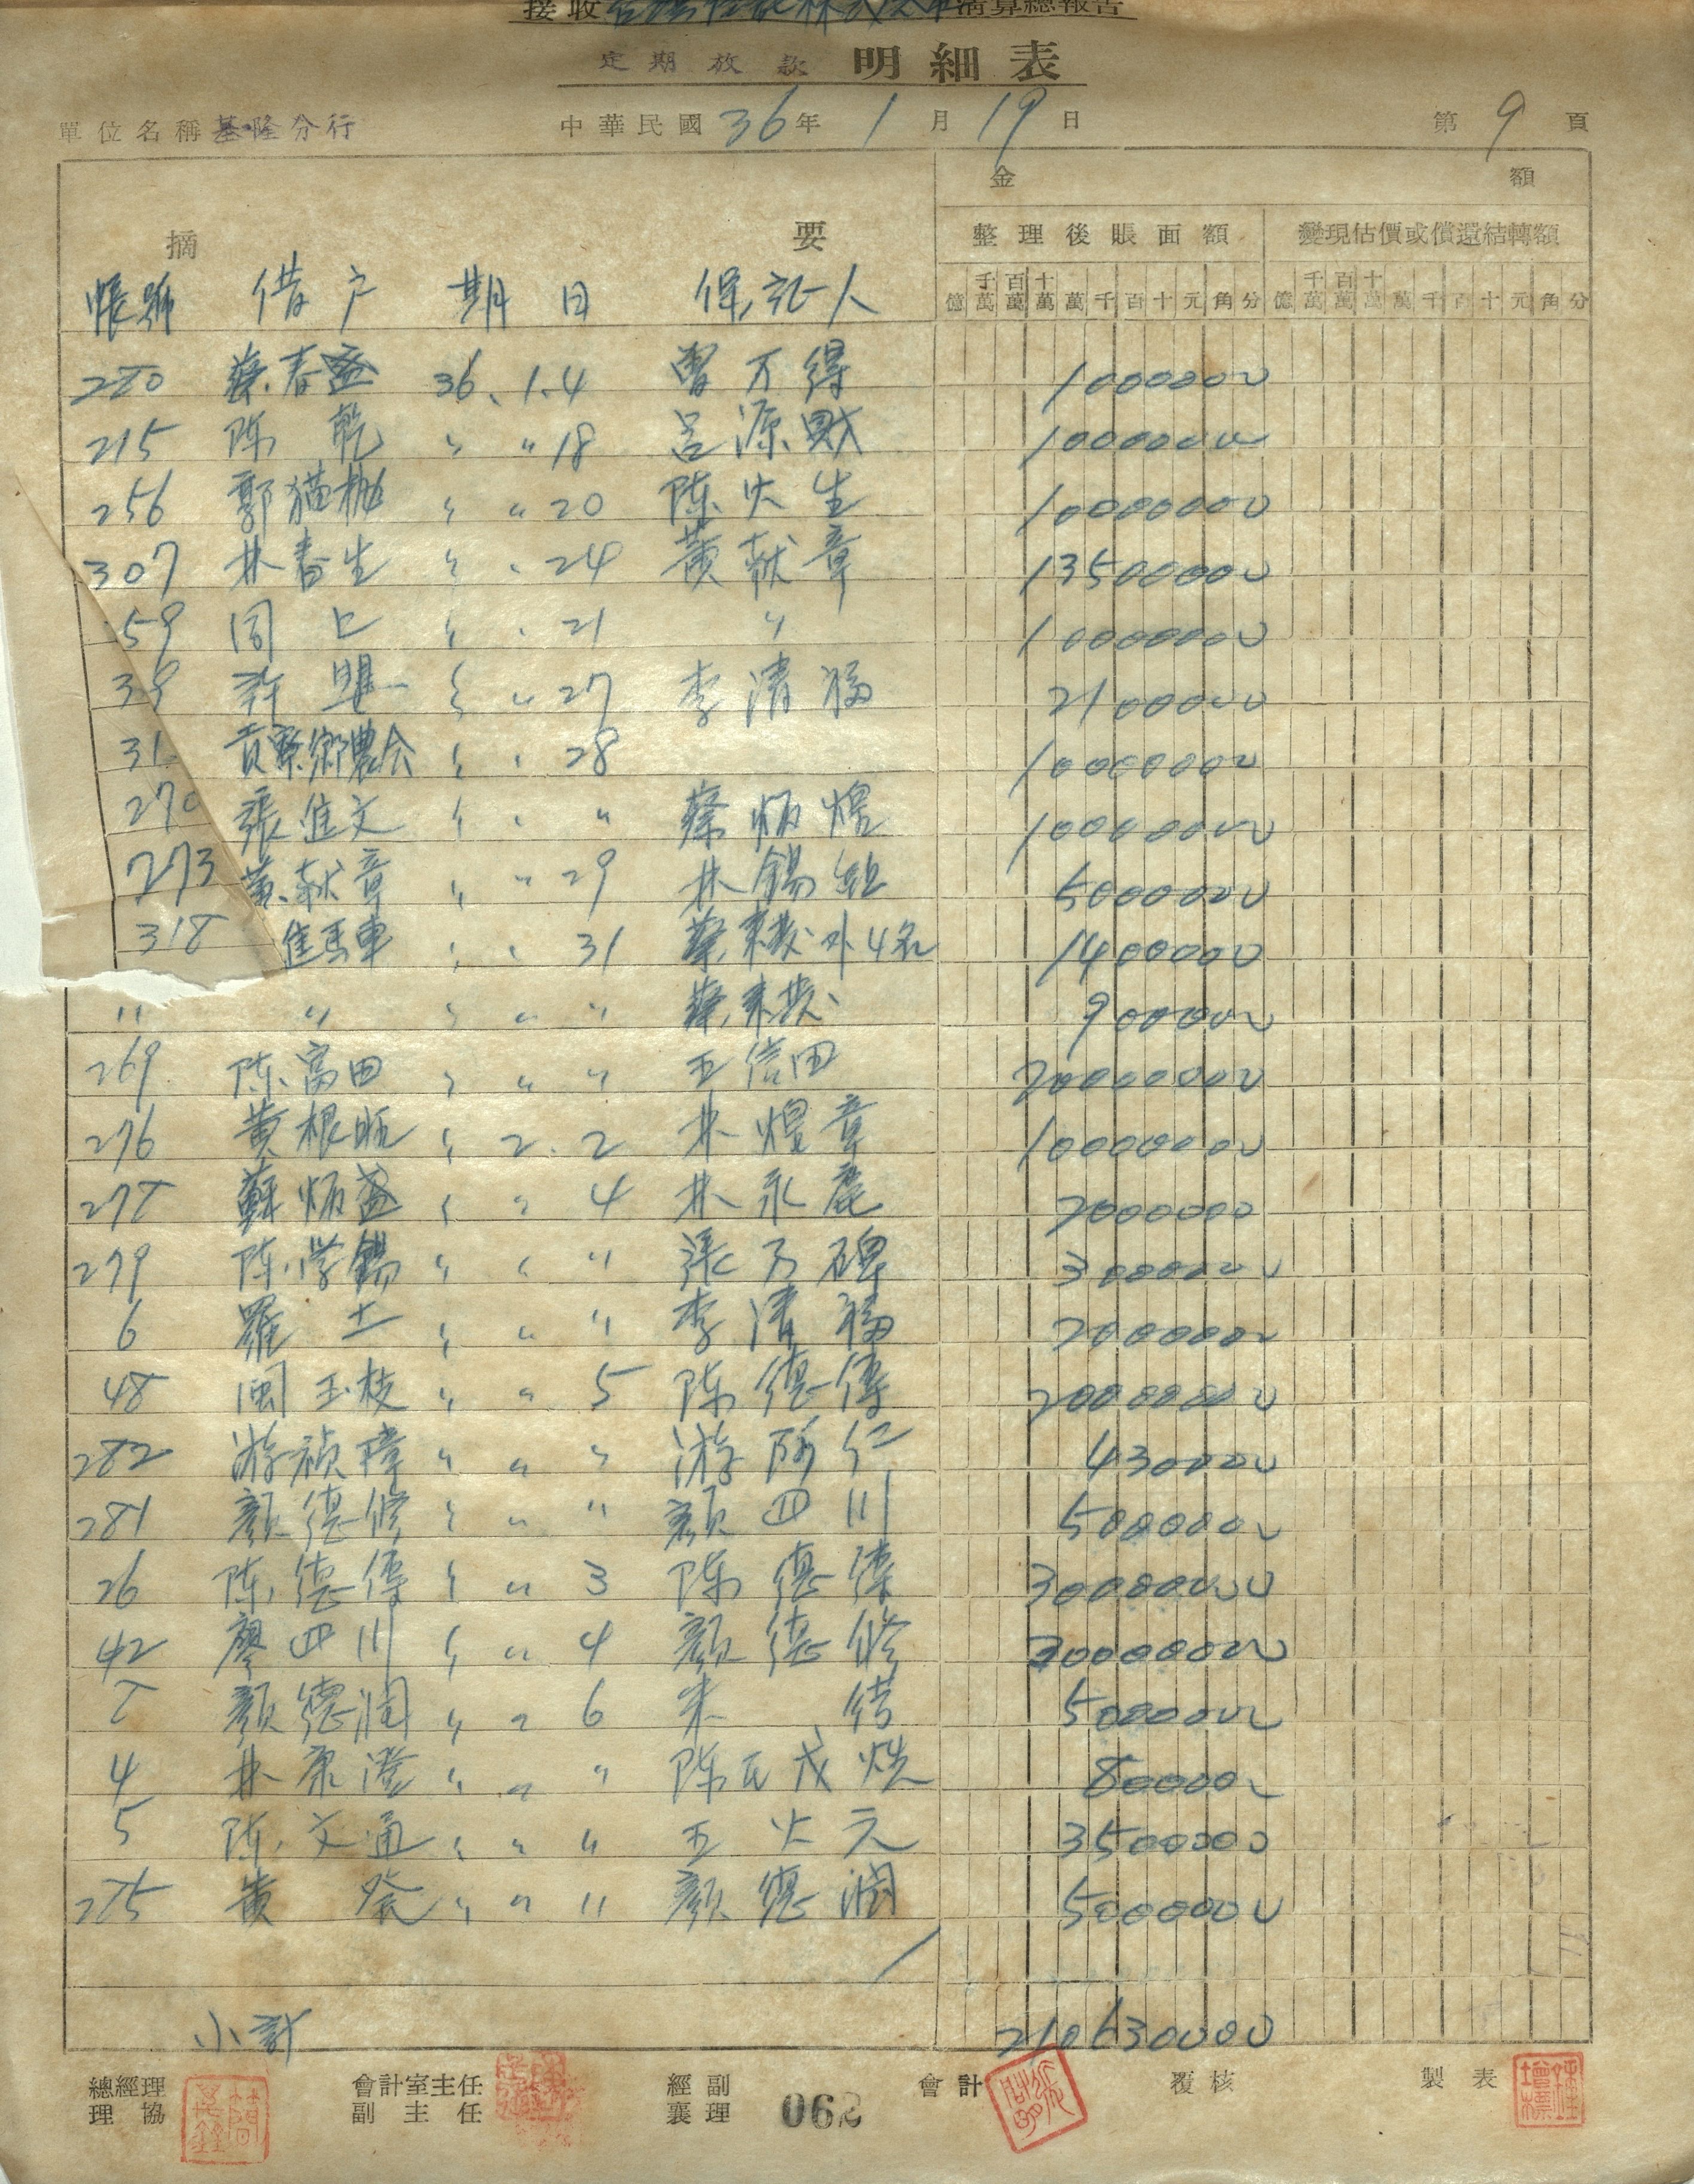 接收台灣信託株式會社清算總報告
定期放款 明細表
單位名稱 基隆分行 中華民國 36 年 1 月 19 日 第 9 頁
金額
摘要 整理後賬面額 變現估價或償還結轉額
帳號 借户 期日 保証人 億 千萬 百萬 十萬 萬 千 百 十 元 角 分 億 千萬 百萬 十萬 萬 千 百 十 元 角 分
280 蔡春盛 36.1.4 曾万得 1000000
215 陈乾 〃 〃 18 呂源財 10000000
256 郭猫 〃 〃 20 陈火生 10000000
307 林春生 〃 〃 24 黄献章 13500000
59 同上 〃 〃 21 〃 10000000
39 許 〃 〃 27 李清福 2100000
31 貢寮鄉農会 〃 〃 28 10000000
270 張進文 〃 〃 〃 蔡炳煌 10000000
273 黄献章 〃 〃 29 林錫 5000000
318 〃 〃 31 蔡 外4名 1400000
〃 〃 〃 〃 〃 蔡 900000
269 陈富田 〃 〃 〃 王信田 20000000
276 黄根旺 〃 2.2 林煌章 10000000
278 蘇炳盛 〃 〃 4 林永鹿 2000000
279 陈学錫 〃 〃 〃 張万碑 3000000
6 羅土 〃 〃 〃 李清福 2000000
48 闽玉枝 〃 〃 5 陈德傳 20000000
282 游禎樟 〃 〃 〃 游阿仁 430000
281 顏德修 〃 〃 〃 顏四川 5000000
26 陈德傳 〃 〃 3 陈德 30000000
42 廖四川 〃 〃 4 顏德修 30000000
8 顏德潤 〃 〃 6 朱结 5000000
4 林康澄 〃 〃 〃 陈氏茂 800000
5 陈文通 〃 〃 〃 王火元 3500000
285 黄癸 〃 〃 11 顏德潤 5000000
小計 210630000
總經理 會計室主任 經副 會計 覆核 製表
理協 副主任 襄理 062